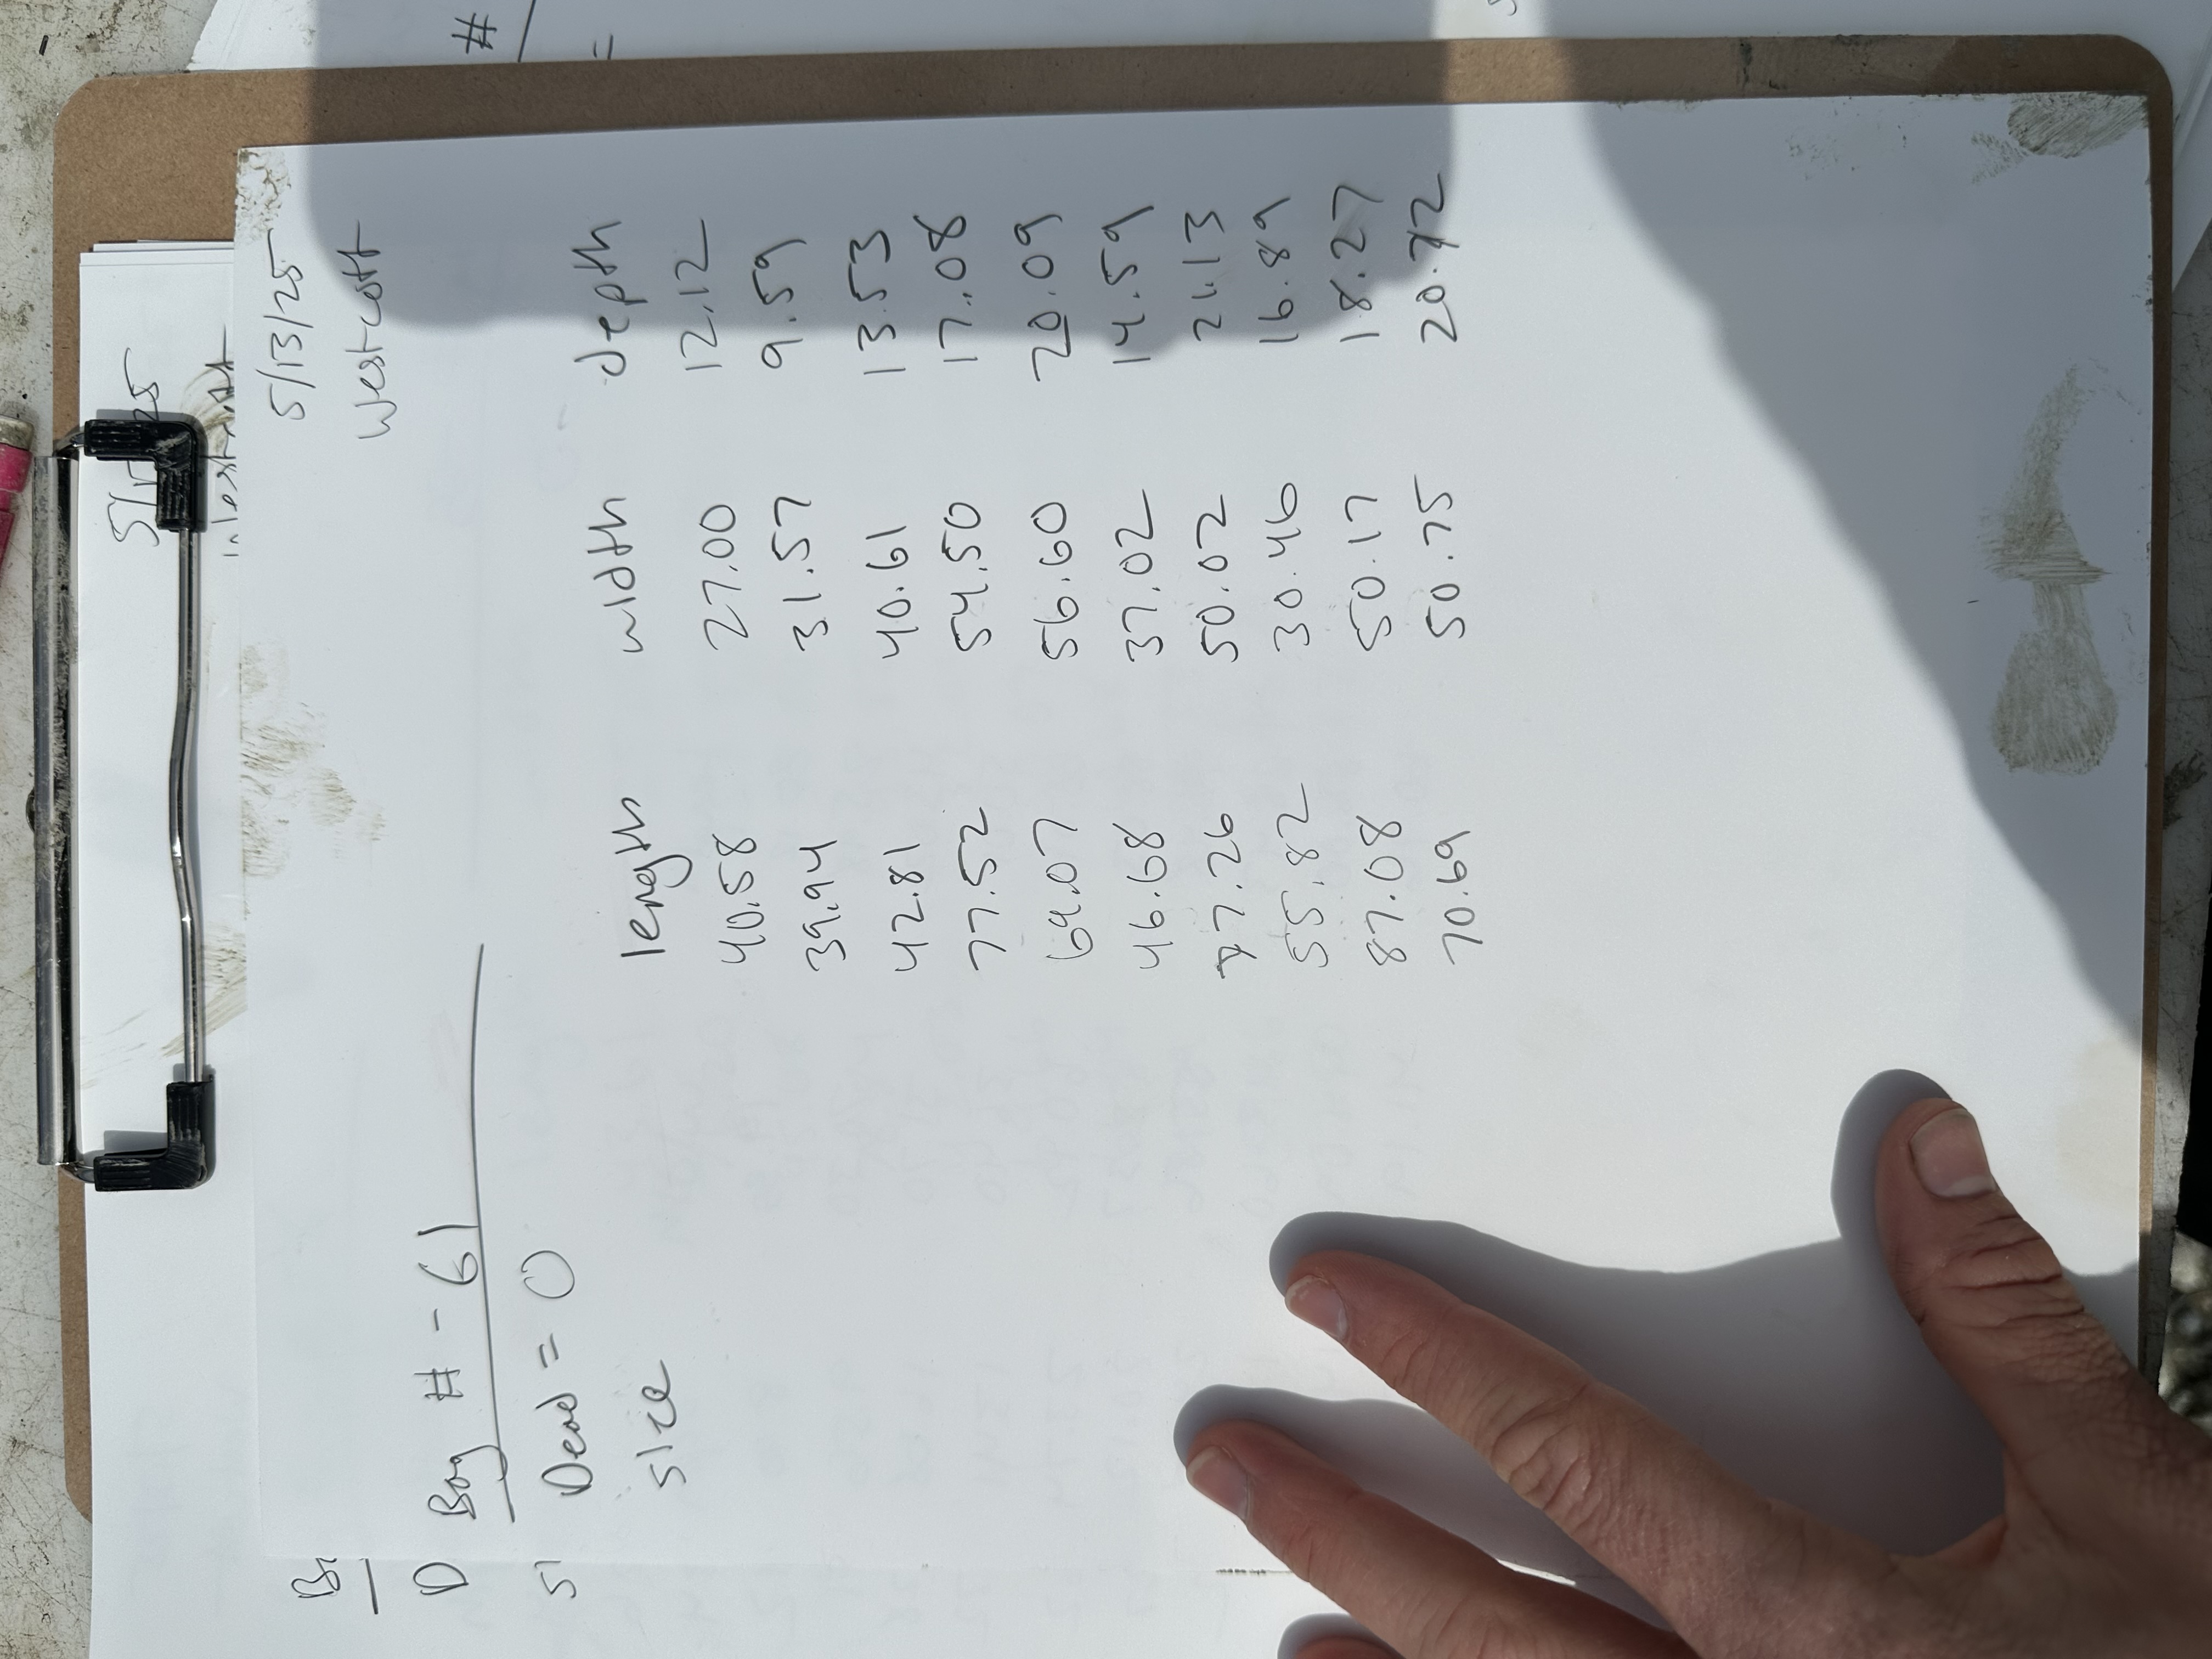 5/13/25
Westcott
Bag # - 61
Dead = 0
size length width depth
40.58 27.00 12.12
39.94 31.57 9.59
42.81 40.61 13.53
77.52 54.50 17.08
69.07 56.60 20.09
46.68 37.02 14.59
77.26 50.02 21.13
55.82 30.46 16.89
87.08 50.17 18.27
70.69 50.75 20.72